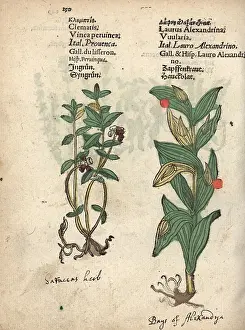 150
Κληματίς.
Clematis.
Vinca peruinca;
Ital. Prouenca.
Gall. du lisseron.
Hisp. Peruinqua.
Ingrün.
Syngrün.
Laurus Alexandrina.
Vuularia.
Ital. Lauro Alexandrino.
Gall. & Hisp. Lauro Alexandri
no.
Zapffenkraut.
Hauckblat.
herb
Bays of Alexandrya